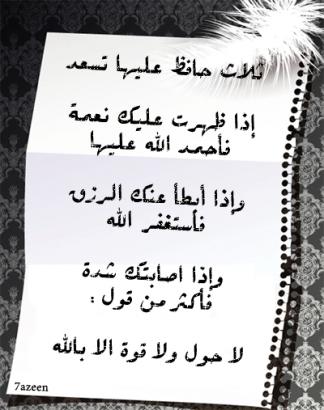 ثلاث حافظ عليها تسعد
إذا ظهرت عليك نعمة
فأحمد الله عليها
وإذا أبطأ عنك الرزق
فأستغفر الله
وإذا اصابتك شدة
فأكثر من قول :
لا حول ولا قوة الا بالله
7azeen